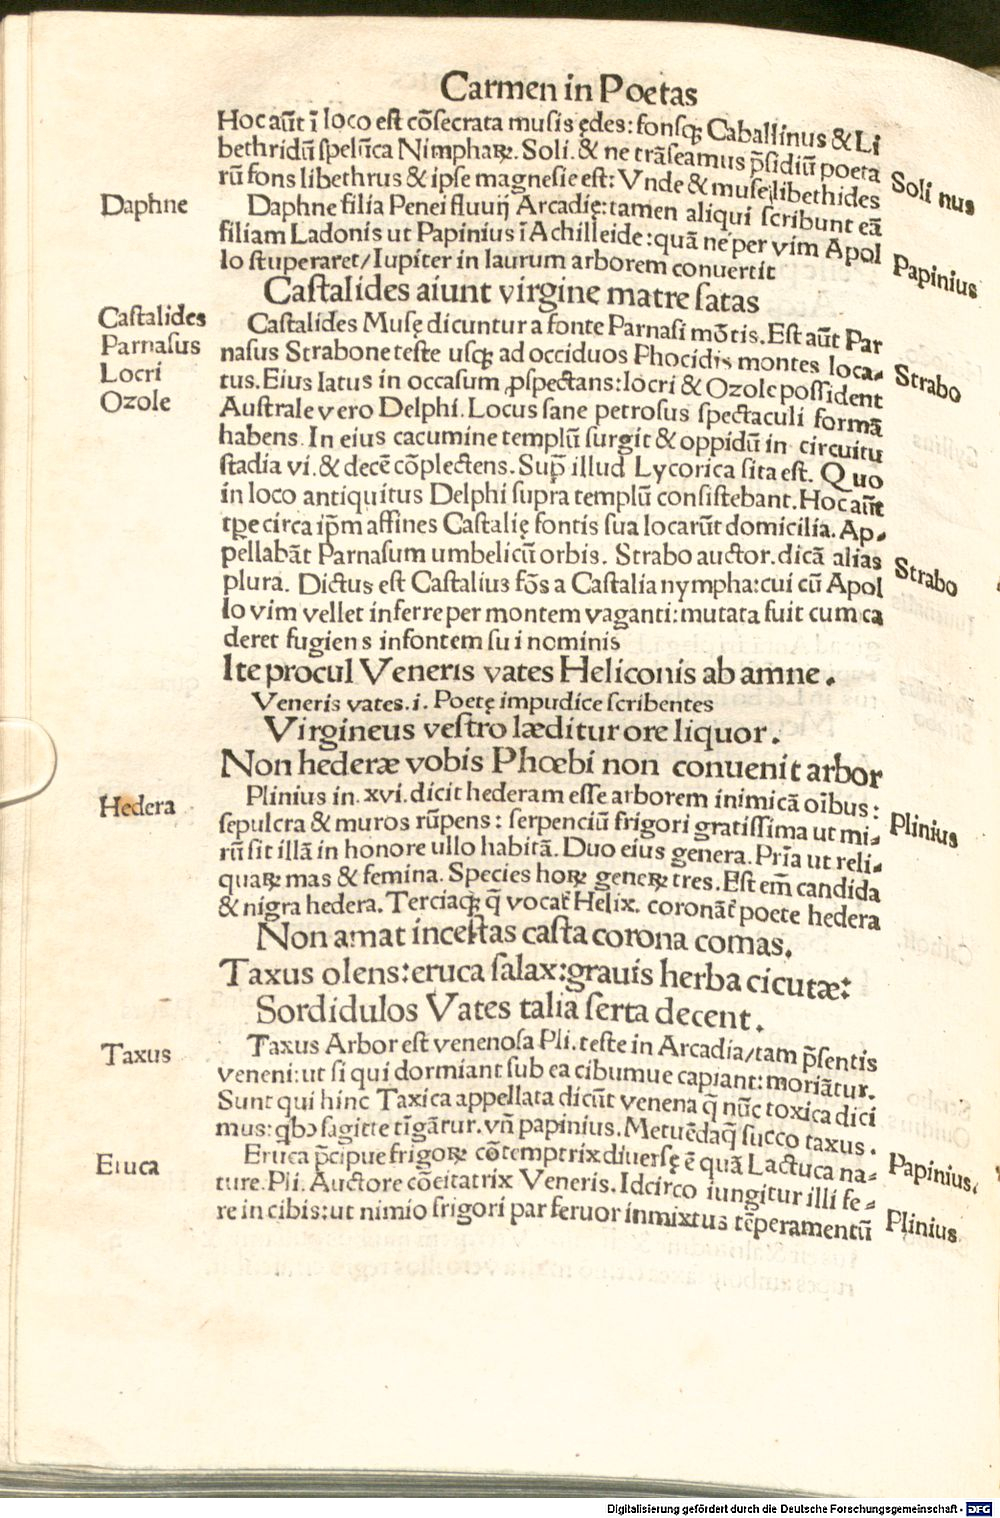 Carmen in Poetas
Hoc aūt ī loco est cōsecrata musis ędes: fonsqꝫ Caballinus & Li
bethridū spelūca Nimphaꝝ. Soli. & ne trāseamus p̄sidiū poeta
rū fons libethrus & ipse magnesie est: Vnde & musę libethides
Soli nus
Daphne
Daphne filia Penei fluuij Arcadię: tamen aliqui scribunt eā
filiam Ladonis ut Papinius ī Achilleide: quā ne per vim Apol
lo stuperaret/Iupiter in laurum arborem conuertit
Papinius
Castalides aiunt virgine matre satas
Castalides
Castalides Musę dicuntur a fonte Parnasi mōtis. Est aūt Par
Parnasus
nasus Strabone teste usqꝫ ad occiduos Phocidis montes loca-
Strabo
Locri
tus. Eius latus in occasum ꝓspectans: locri & Ozole possident
Ozole
Australe vero Delphi. Locus sane petrosus spectaculi formā
habens. In eius cacumine templū surgit & oppidū in circuitu
stadia vi. & decē cōplectens. Sup̄ illud Lycorica sita est. Quo
in loco antiquitus Delphi supra templū consistebant. Hoc aūt
tꝑe circa ip̄m affines Castalię fontis sua locarūt domicilia. Ap-
pellabāt Parnasum umbelicū orbis. Strabo auctor. dicā alias
Strabo
plura. Dictus est Castaliuꝫ fōs a Castalia nympha: cui cū Apol
lo vim vellet inferre per montem vaganti: mutata fuit cum ca
deret fugien s infontem su i nominis
Ite procul Veneris vates Heliconis ab amne.
Veneris vates. i. Poetę impudice scribentes
Virgineus vestro læditur ore liquor.
Non hederæ vobis Phœbi non conuenit arbor
Hedera
Plinius in. xvi. dicit hederam esse arborem inimicā oībus:
sepulcra & muros rūpens: serpenciū frigori gratissima ut mi-
Plinius
rū sit illā in honore ullo habitā. Duo eius genera. Prīa ut reli-
quaꝝ mas & femina. Species hoꝝ geneꝝ tres. Est em̄ candida
& nigra hedera. Terciaqꝫ q̄ vocat̄ Helix. coronāt̄ poete hedera
Non amat incestas casta corona comas.
Taxus olens: eruca salax: grauis herba cicutæ:
Sordidulos Vates talia serta decent.
Taxus
Taxus Arbor est venenosa Pli. teste in Arcadia/tam p̄sentis
veneni: ut si qui dormiant sub ea cibumue capiant: moriātur.
Sunt qui hinc Taxica appellata dicūt venena q̄ nūc toxica dici
mus: qbꝰ sagitte tīgātur. vn̄ papinius. Metuēdaq̄ succo taxus.
Papinius.
Eruca
Eruca p̄cipue frigoꝝ cōtemptrix diuersę ē quā Lactuca na-
ture. Pli. Auctore cōcitatrix Veneris. Idcirco iungitur illi fe-
re in cibis: ut nimio frigori par feruor inmixtus tēperamentū
Plinius
Digitalisierung gefördert durch die Deutsche Forschungsgemeinschaft - DFG